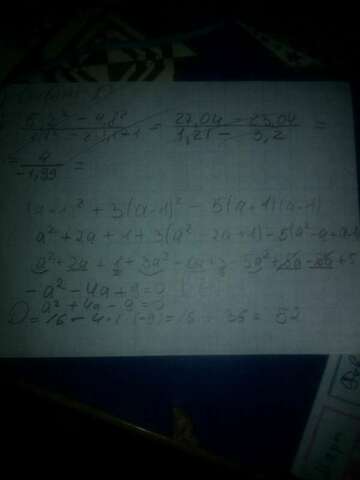 5,2² - 4,8² = 27,04 - 23,04 =
1,21 - 3,2
= 4 / -1,99 =
(a+1)² + 3(a-1)² - 5(a+1)(a-1)
a² + 2a + 1 + 3(a² - 2a + 1) - 5(a² - a + a - 1)
a² + 2a + 1 + 3a² - 6a + 3 - 5a² + 5a - 5a + 5
- a² - 4a + 9 = 0
a² + 4a - 9 = 0
D = 16 - 4·1·(-9) = 16 + 36 = 52